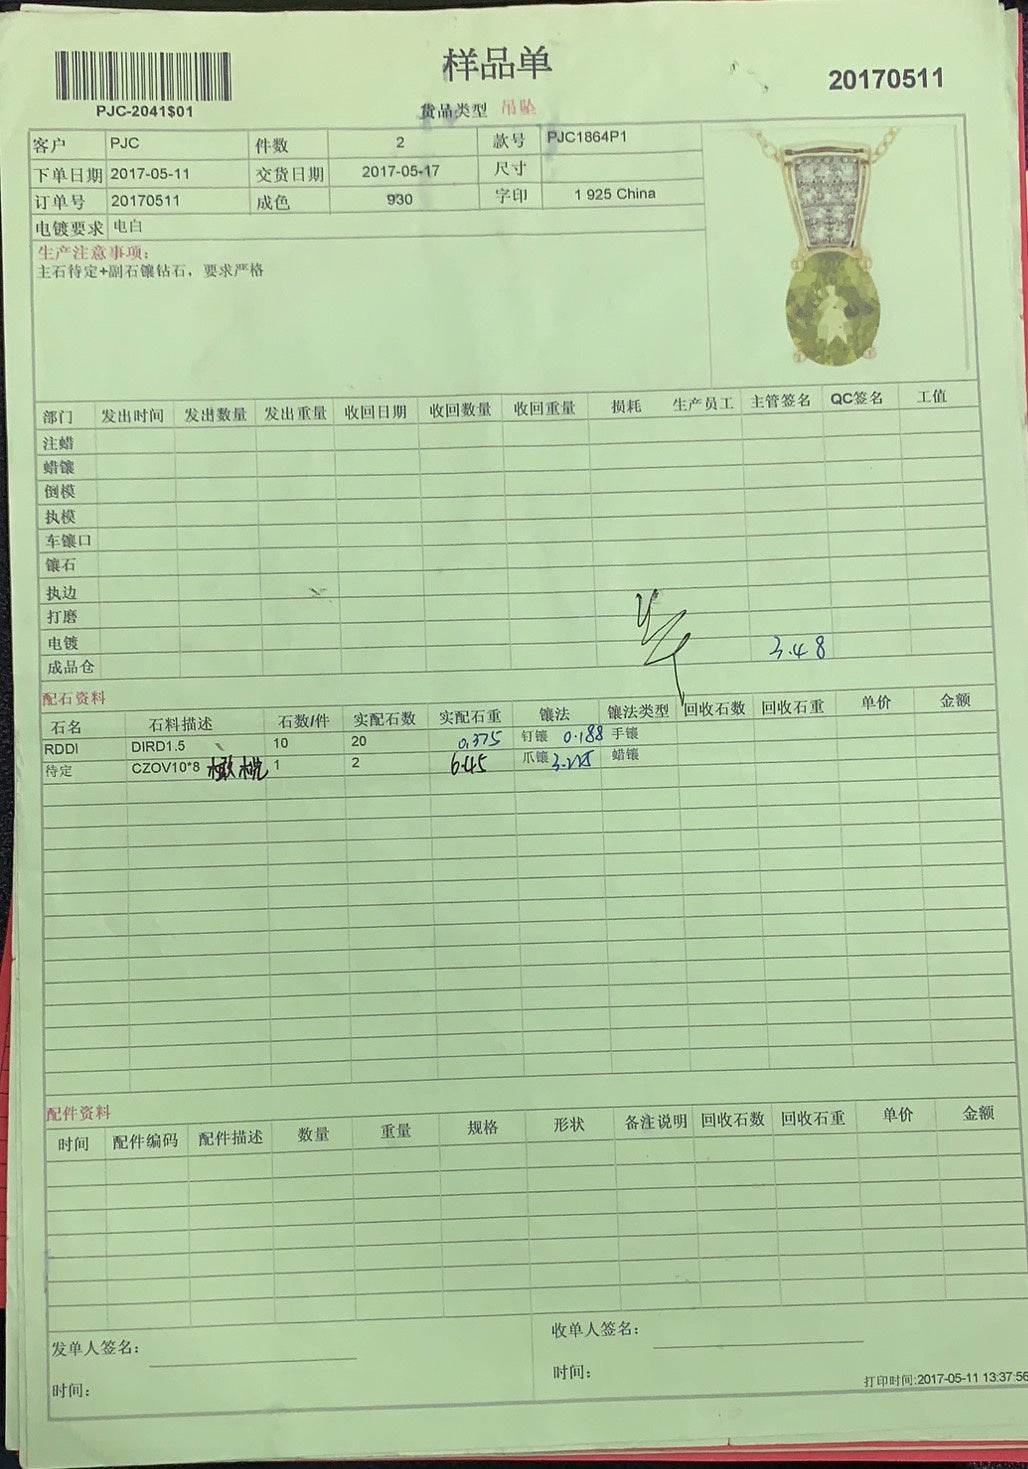 样品单
20170511
PJC-2041$01
货品类型 吊坠
客户 PJC 件数 2 款号 PJC1864P1
下单日期 2017-05-11 交货日期 2017-05-17 尺寸
订单号 20170511 成色 930 字印 1 925 China
电镀要求 电白
生产注意事项:
主石待定+副石镶钻石，要求严格
部门 发出时间 发出数量 发出重量 收回日期 收回数量 收回重量 损耗 生产员工 主管签名 QC签名 工值
注蜡
蜡镶
倒模
执模
车镶口
镶石
执边
打磨
电镀 3.48
成品仓
配石资料
石名 石料描述 石数/件 实配石数 实配石重 镶法 镶法类型 回收石数 回收石重 单价 金额
RDDI DIRD1.5 10 20 0.375 钉镶 0.188 手镶
待定 CZOV10*8 橄榄 1 2 6.45 爪镶 3.225 蜡镶
配件资料
时间 配件编码 配件描述 数量 重量 规格 形状 备注说明 回收石数 回收石重 单价 金额
发单人签名: 收单人签名:
时间: 时间:
打印时间:2017-05-11 13:37:56